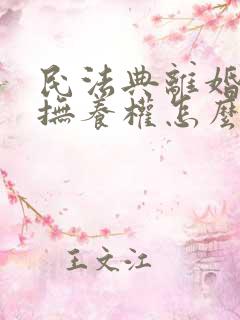 民法典離婚
撫養權怎麼
王文江